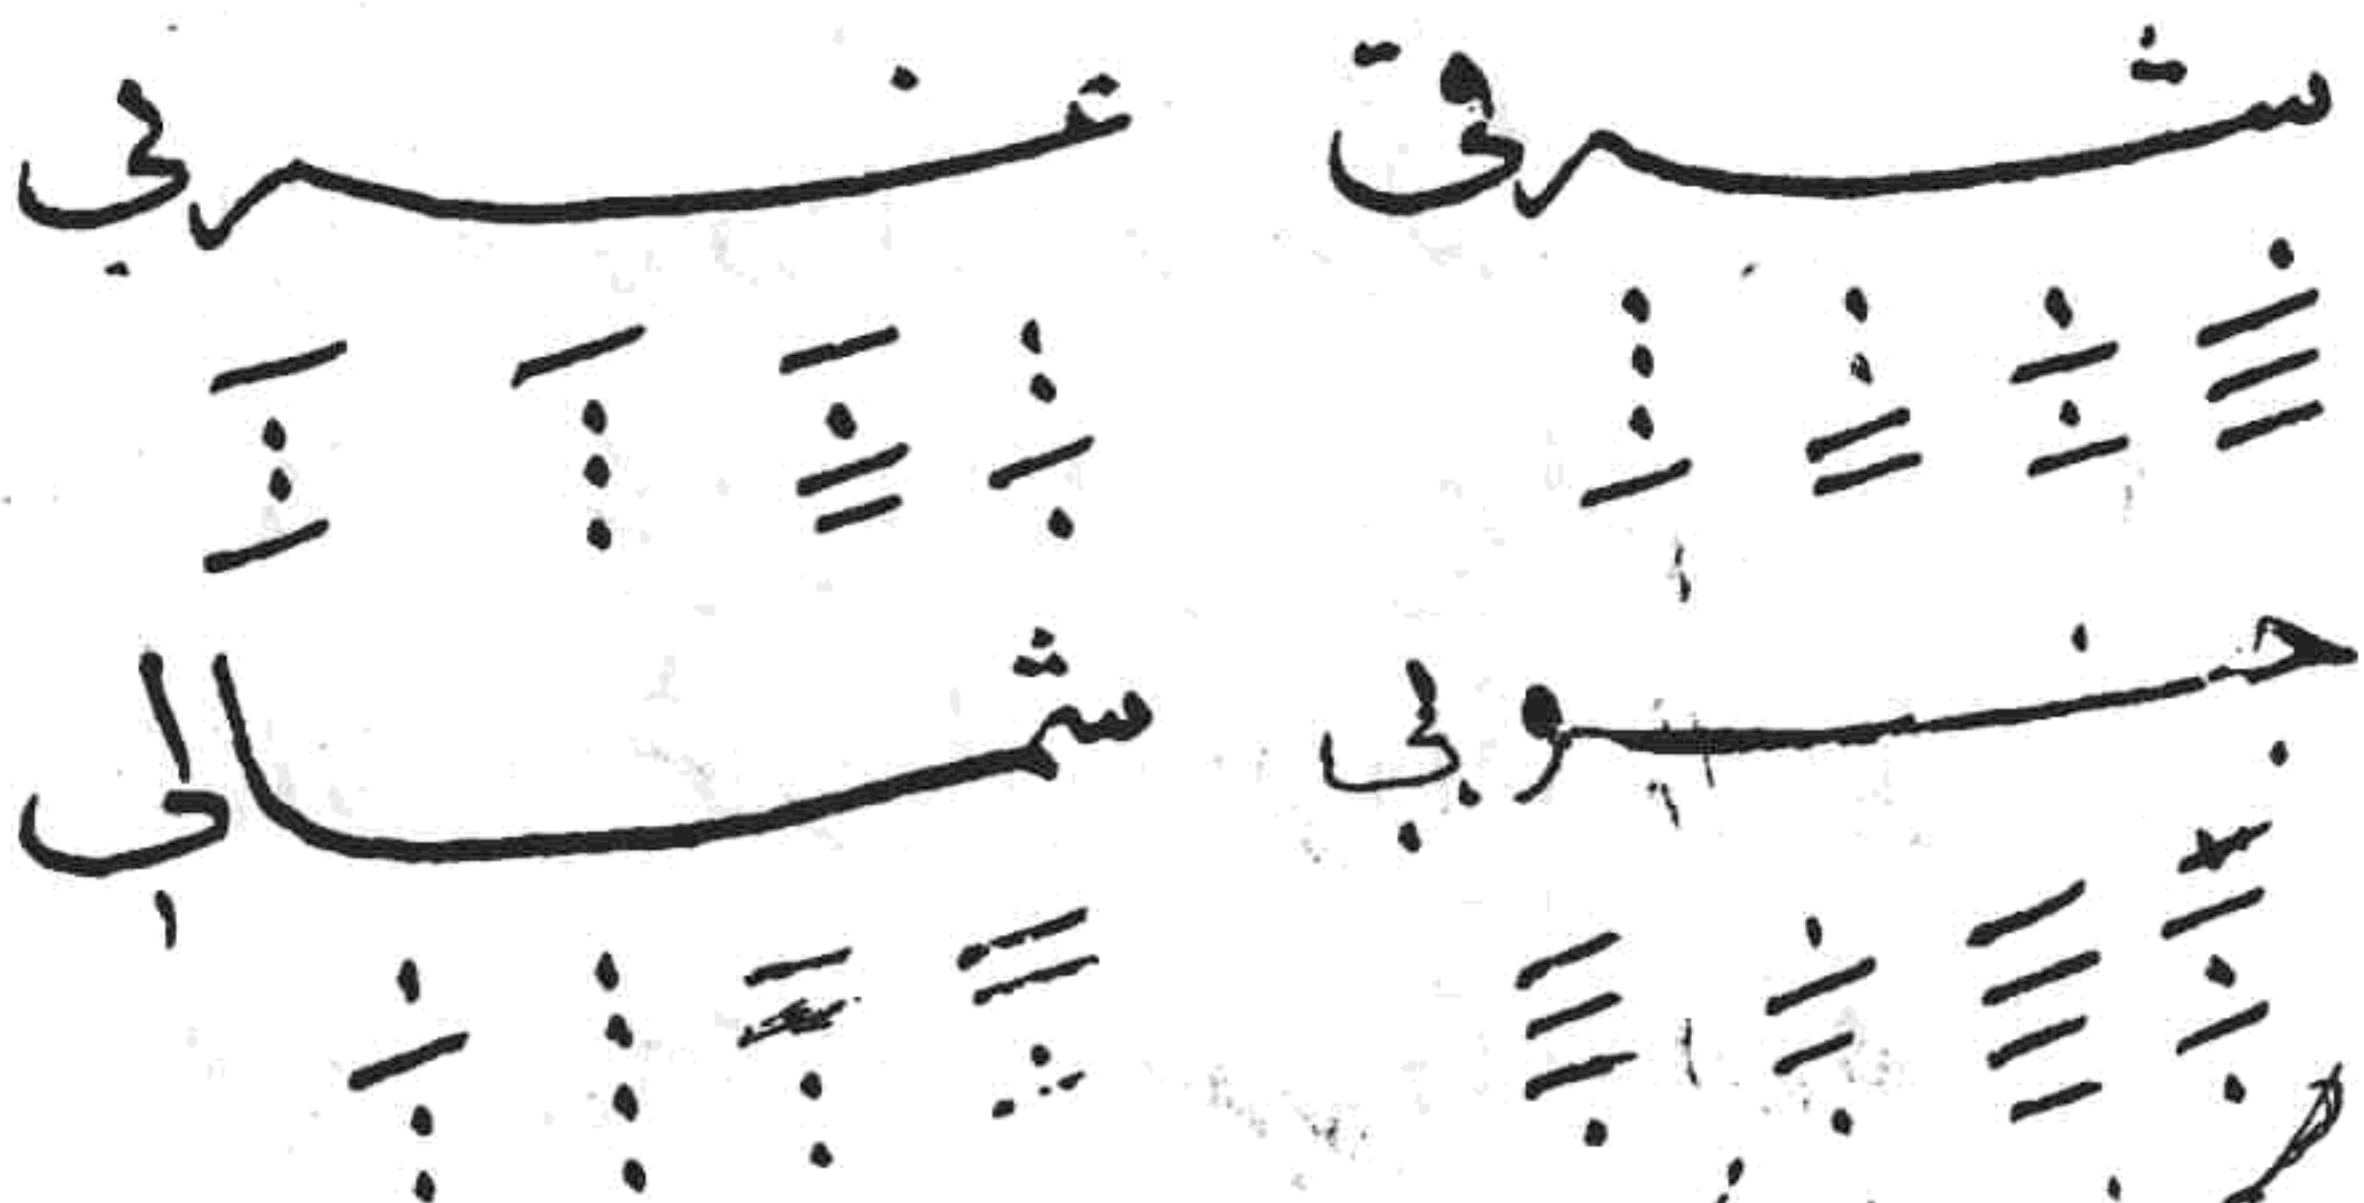 شرقي غربي
جنوبي شمالي